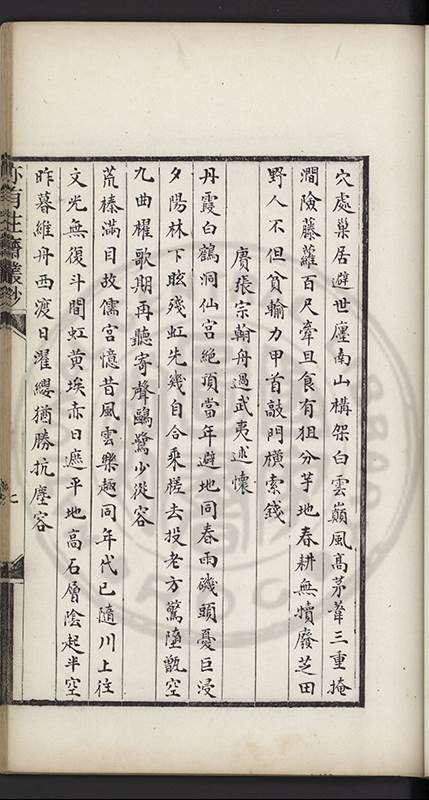 穴處巢居避世廛南山構架白雲巔風高茅葦三重掩
澗險藤蘿百尺牽旦食有狙分芋地春耕無犢廢芝田
野人不但貧輸力甲首敲門橫索錢
賡張宗翰舟過武夷述懷
丹霞白鶴洞仙宮絶頂當年避地同春雨磯頭憂巨浸
夕陽林下眩殘虹先幾自合乘槎去投老方驚墮甑空
九曲櫂歌期再聽寄聲鷗鷺少從容
荒榛滿目故儒宮憶昔風雲樂趣同年代已隨川上往
文光無復斗間虹黄埃赤日遮平地高石層陰起半空
昨暮維舟西渡日濯纓猶勝抗塵容
亦有生齋叢鈔
七